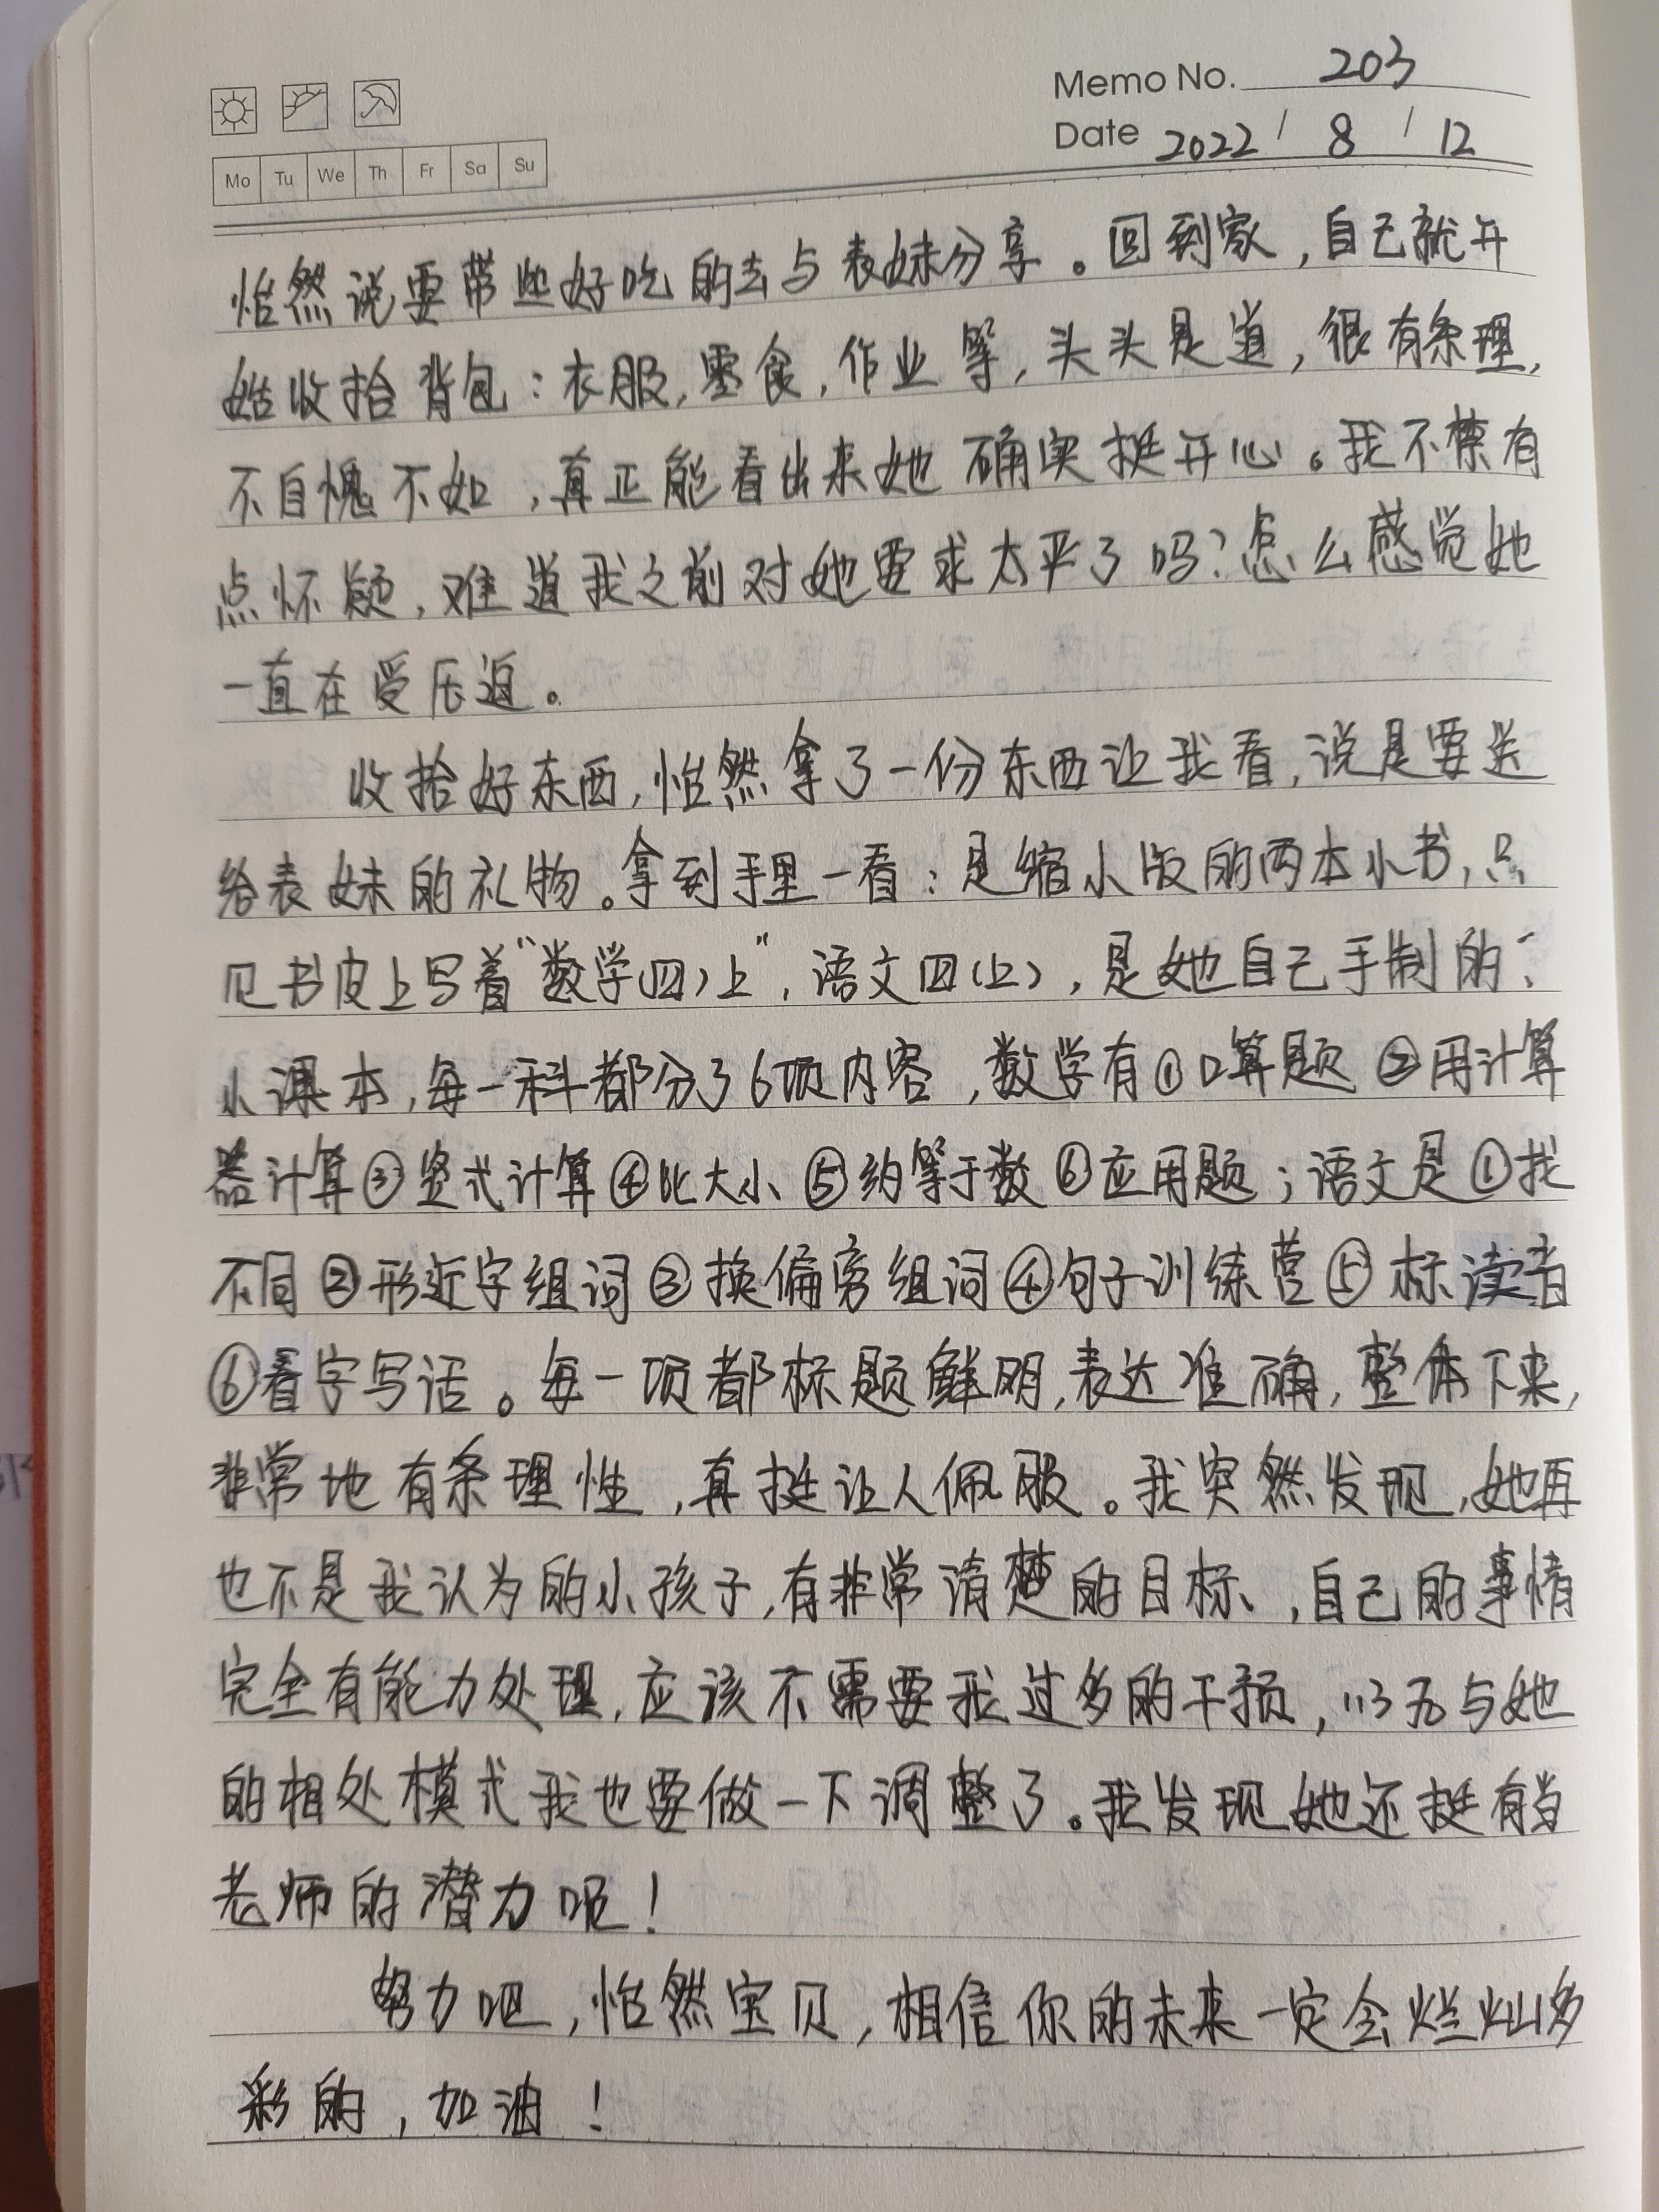 Memo No. 203
Date 2022 / 8 / 12
Mo Tu We Th Fr Sa Su
怡然说要带些好吃的去与表妹分享。回到家，自己就开
始收拾背包：衣服，零食，作业等，头头是道，很有条理，
不自愧不如，真正能看出来她确实挺开心。我不禁有
点怀疑，难道我之前对她要求太严了吗？怎么感觉她
一直在受压迫。
收拾好东西，怡然拿了一份东西让我看，说是要送
给表妹的礼物。拿到手里一看：是缩小版的两本小书，只
见书皮上写着“数学(四)上”，语文四(上)，是她自己手制的
小课本，每一科都分了6项内容，数学有①口算题②用计算
器计算③竖式计算④比大小⑤约等于数⑥应用题；语文是①找
不同②形近字组词③换偏旁组词④句子训练营⑤标读音
⑥看字写话。每一项都标题鲜明，表达准确，整体下来，
非常地有条理性，真挺让人佩服。我突然发现，她再
也不是我认为的小孩子，有非常清楚的目标、，自己的事情
完全有能力处理，应该不需要我过多的干预，以后与她
的相处模式我也要做一下调整了。我发现她还挺有当
老师的潜力呢！
努力吧，怡然宝贝，相信你的未来一定会烂灿多
彩的，加油！